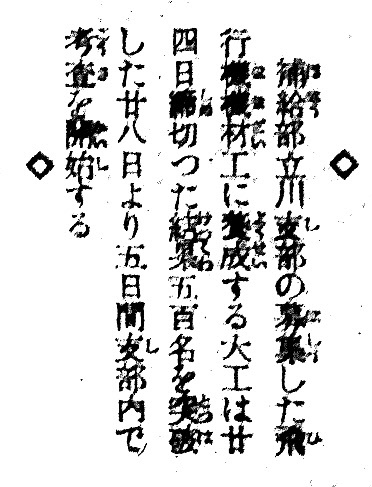 補給部立川支部の募集した飛
行機機材工に養成する大工は廿
四日締切つた結果五百名を突破
した廿八日より五日間支部内で
考査を開始する